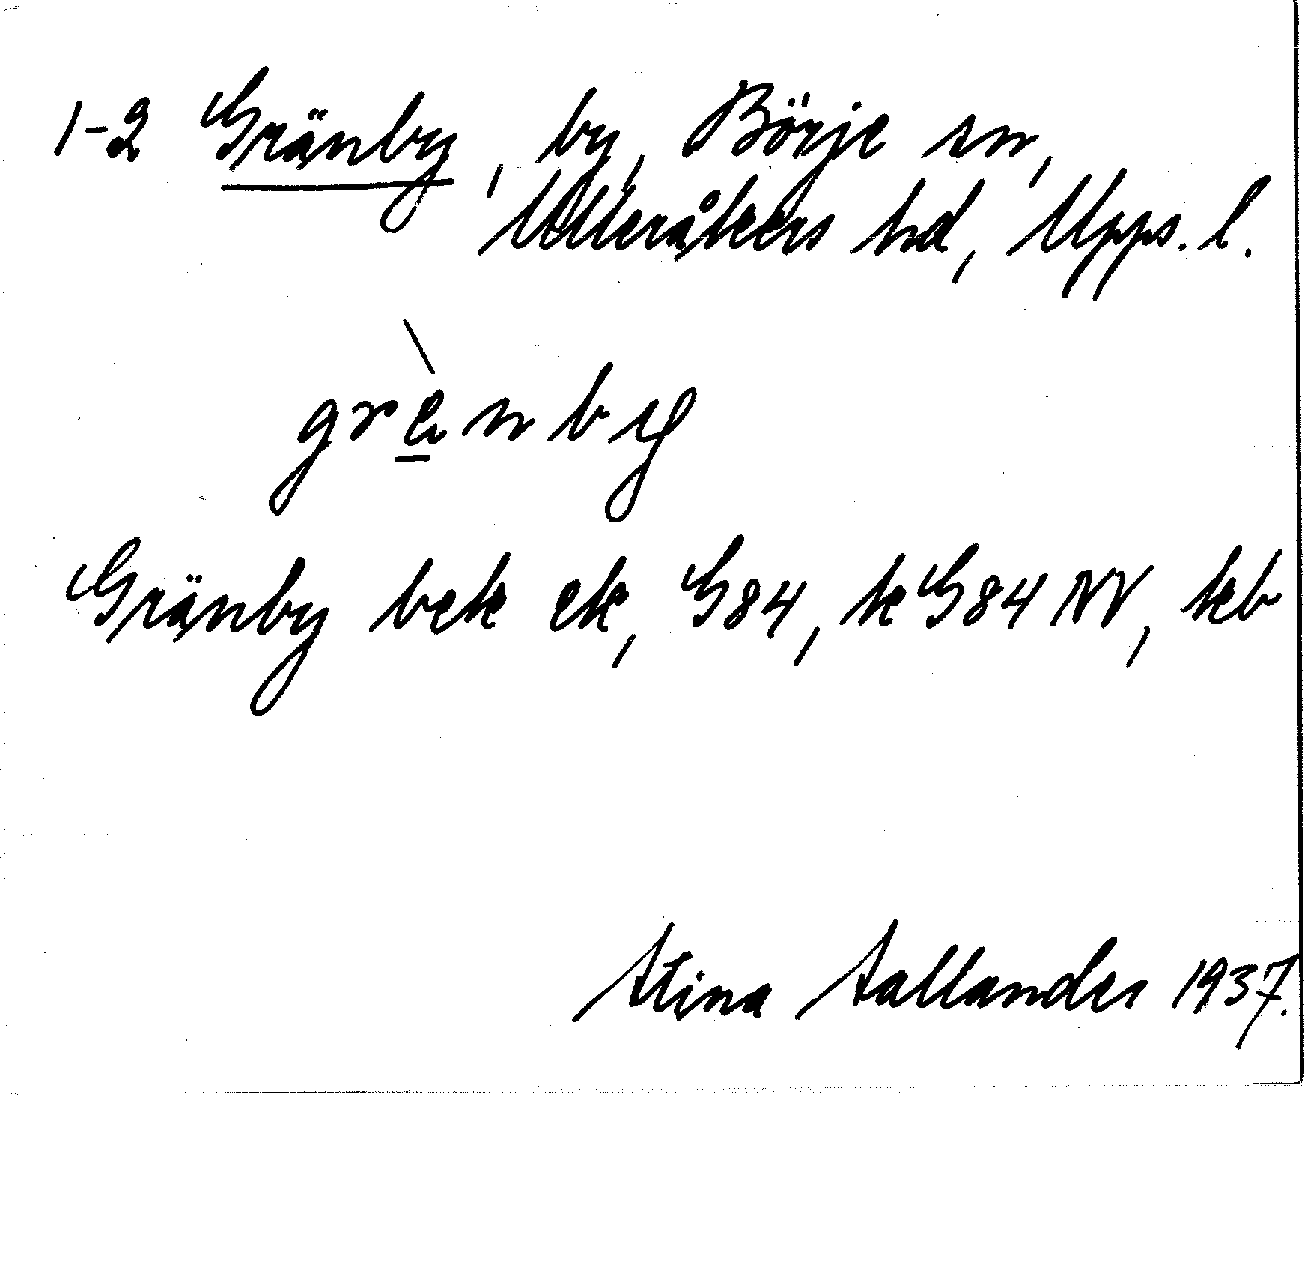 1-2 Gränby, by, Börje sn,
Ulleråkers hd, Upps. l.
grὲnby
Gränby bek ek, G84, kG84NV, kb
Stina Sallander 1937.